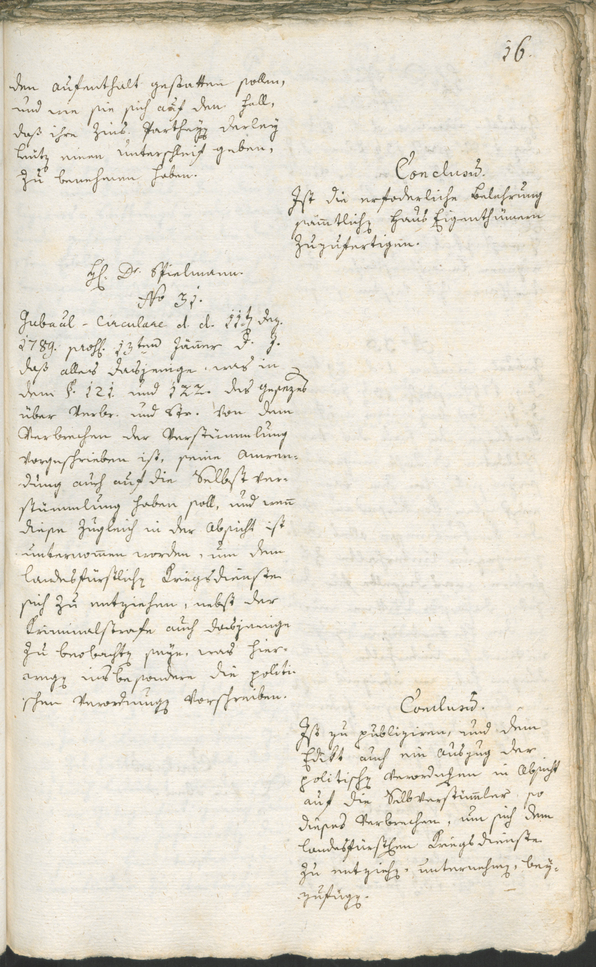 16.
den Aufenthalt gestatten sollen,
und wie sie sich auf den Fall,
daß ihre Zins Partheyen derley
Leüth einen Unterschleif geben,
zu benehmen haben.
Conclusum.
Ist die erforderliche Belehrung
sämmtlichen Haus Eigenthümern
zuzufertigen.
H. Dr. Spielmann.
No 31.
Gubernal-Circulare d. d. 11ten Dez.
1789. 13ten Jänner d. J.
daß alles dasjenige, was in
dem §. 121 und 122. des Gesezes
über Verbr. und Str. von dem
Verbrechen der Verstümmlung
vorgeschrieben ist, seine Anwen-
dung auch auf die Selbst ver-
stümmlung haben soll, und wenn
diese zugleich in der Absicht ist
unternommen worden, um dem
landesfürstlichen Kriegsdienste
sich zu entziehen, nebst der
Kriminalstrafe auch dasjenige
zu beobachten seye, was hier-
wegen insbesondere die politi-
schen Verordnungen vorschreiben.
Conclusum.
Ist zu publiziren, und dem
Edikt auch ein Auszug der
politischen Verordnungen in Absicht
auf die Selbverstümler, so
dieses Verbrechen, um sich dem
landesfürstlichen Kriegsdienste
zu entziehen, unternehmen, bey-
zufügen.